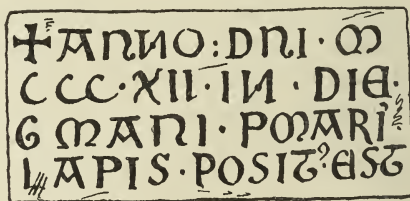 +ANNO:DNI·M
CCC·XII·IN·DIE·
GMANI·PMARI'
LAPIS·POSIT'EST